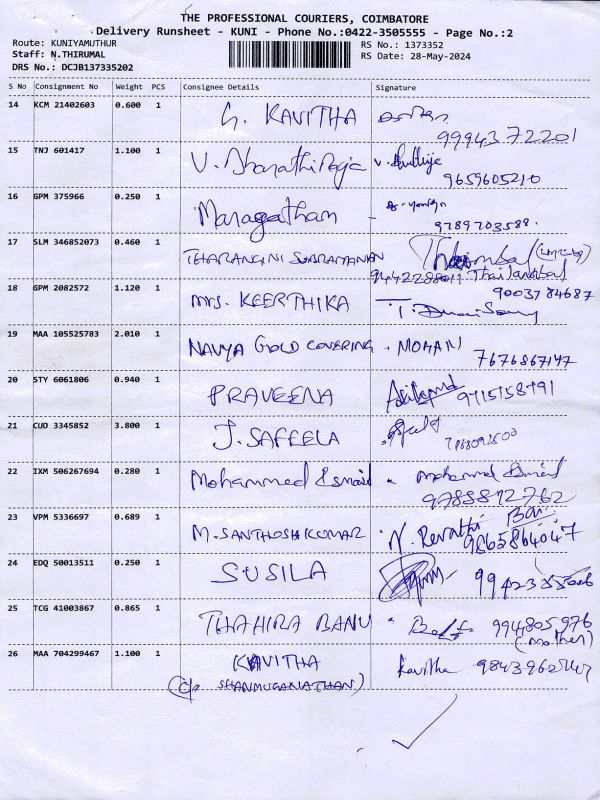 THE PROFESSIONAL COURIERS, COIMBATORE
Delivery Runsheet - KUNI - Phone No.:0422-3505555 - Page No.:2
Route: KUNIYAMUTHUR
Staff: N.THIRUMAL
DRS No.: DCJB137335202
RS No.: 1373352
RS Date: 28-May-2024
S No Consignment No Weight PCS Consignee Details Signature
14 KCM 21402603 0.600 1 G. KAVITHA
9994372201
15 TNJ 601417 1.100 1 V. BharathiRaja
9659605210
16 GPM 375966 0.250 1 Maragatham
9789703588.
17 SLM 346852073 0.460 1 THARANGINI SUBRAMANIAN
18 GPM 2082572 1.120 1 mrs. KEERTHIKA
9003784687
19 MAA 105525783 2.010 1 NAVYA GOLD COVERING . MOHAN
7676867147
20 STY 6061806 0.940 1 PRAVEENA 9715158791
21 CUD 3345852 3.800 1 J. SAFEELA
22 IXM 506267694 0.280 1 Mohammed Ismail
23 VPM 5336697 0.689 1 M. SANTHOSH KUMAR N. Revathi
9865864047
24 EDQ 50013511 0.250 1 SUSILA
25 TCG 41003867 0.865 1 THAHIRA BANU 994805976
(mother)
26 MAA 704299467 1.100 1 KAVITHA Kavitha
(C/o SHANMUGANATHAN)